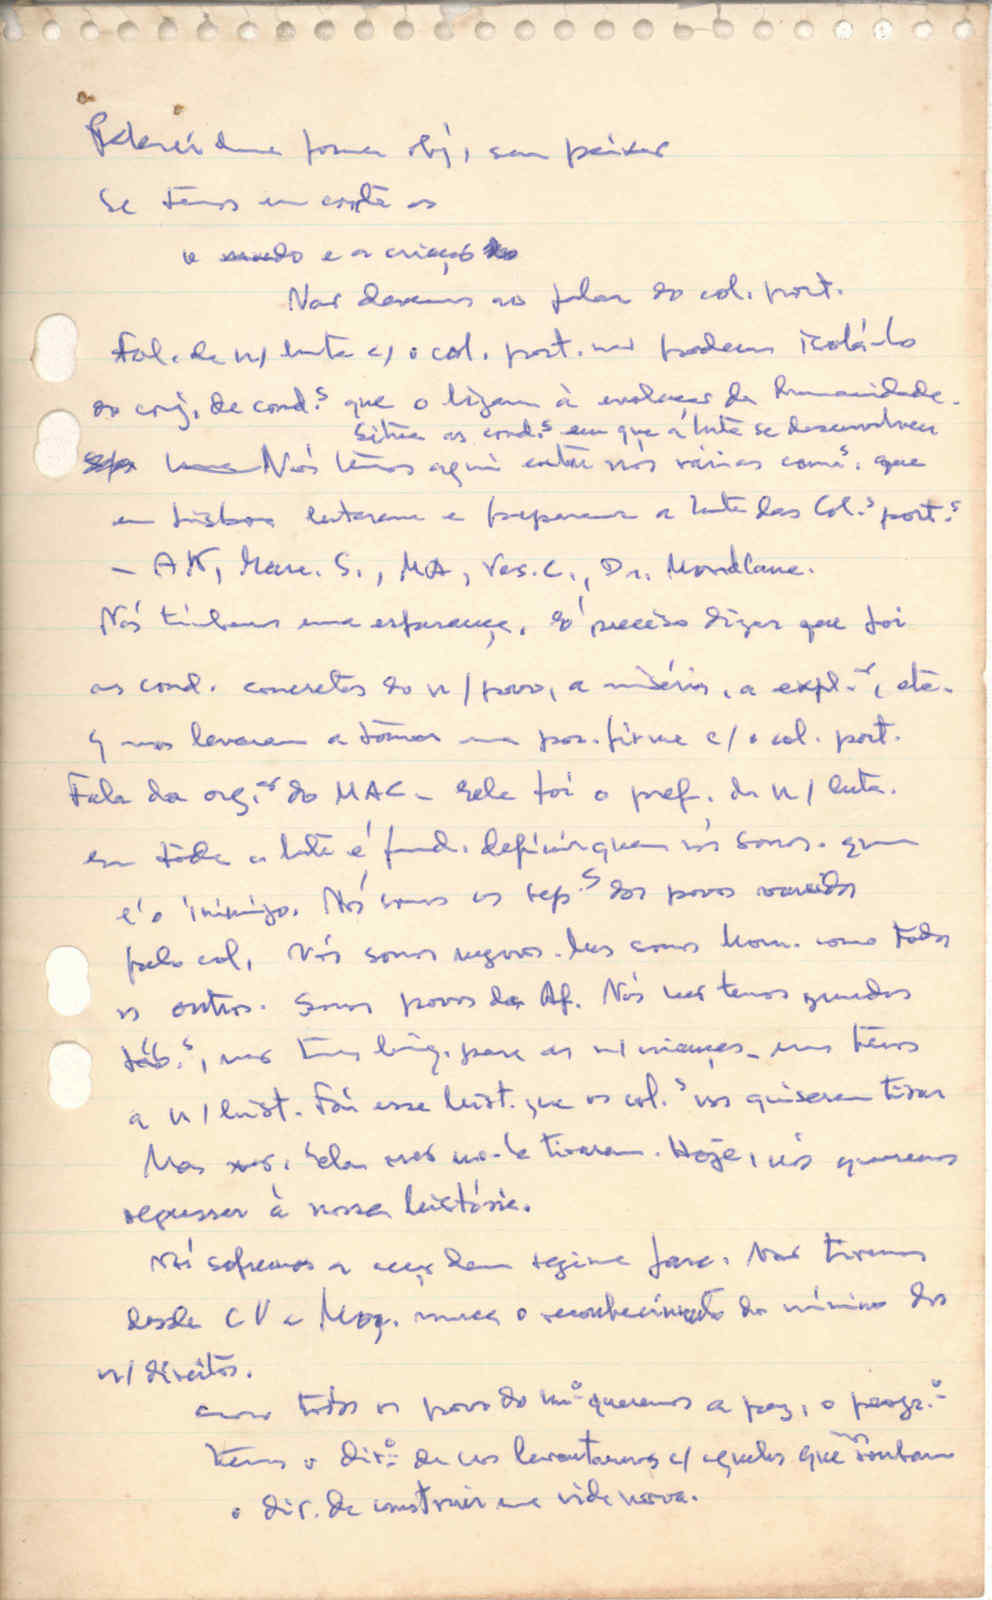 duma forma obj, sem
Se temos em conta os
o mundo e a criação
Não devemos ao falar do col. port.
Fal. da n/ luta c/ o col. port. não podemos isolá-lo
do conj. de cond.s que o ligam à evolução da humanidade.
Situa as cond.s em que a luta se desenvolveu
Nós temos aqui entre nós vários cam.s que
em Lisboa lutaram e prepararam a luta das Col.s port.s
- AK, Marc. S., MA, Vas. C., Dr. Mondlane.
Nós tínhamos uma esperança. É preciso dizer que foi
as cond. concretas do n/ povo, a miséria, a expl.ão, etc.
q nos levaram a tomar uma pos. firme c/ o col. port.
Fala da org.ão do MAC - ele foi o pref. da n/ luta.
em toda a luta é fund. definir quem nós somos. quem
é o inimigo. Nós somos os rep.s dos povos
pelo col. Nós somos negros. Mas somos hom. como todos
os outros. Somos povos da Af. Nós não temos grandes
fáb.s, não temos para as n/ crianças - mas temos
a n/ hist. Foi essa hist. que os col.s nos quiseram tirar
Mas não. Eles não no-la tiraram. Hoje, nós queremos
regressar à nossa história.
Nós sofremos a acção dum regime fasc. Não tivemos
desde CV a Moç. nunca o reconhecimento do mínimo dos
n/ direitos.
como todos os povos do mº queremos a paz, o progr.º
temos o dirº de nos levantarmos c/ aqueles que nos roubam
o dir. de construir uma vida nova.